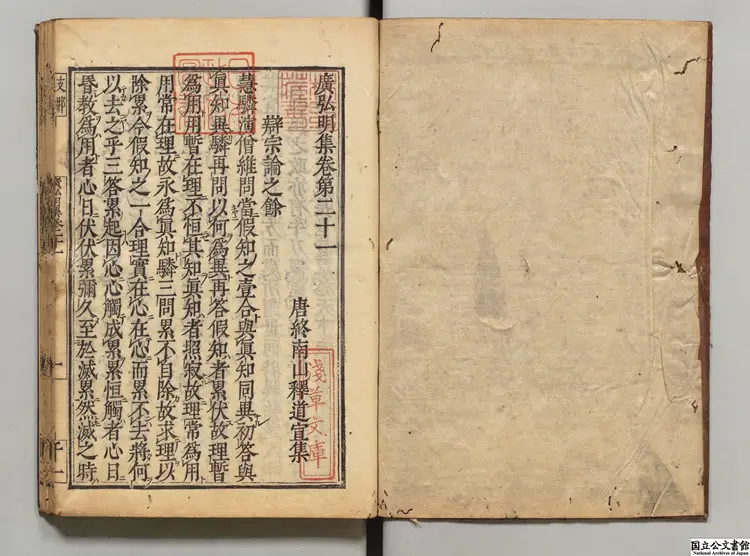 廣弘明集卷第二十一
唐終南山釋道宣集
辯宗論之餘
慧驎演僧維問當假知之壹合與眞知同異初答與
眞知異驎再問以何爲異再答假知者累伏故理暫
爲用用暫在理不恒其知眞知者照寂故理常爲用
用常在理故永爲眞知驎三問累不自除故求理以
除累今假知之一合理實在心在心而累不去將何
以去之乎三答累起因心心觸成累累恒觸者心日
昏教爲用者心日伏伏累彌久至於滅累然滅之時
支那
淺草文庫
国立公文書館
National Archives of Japan